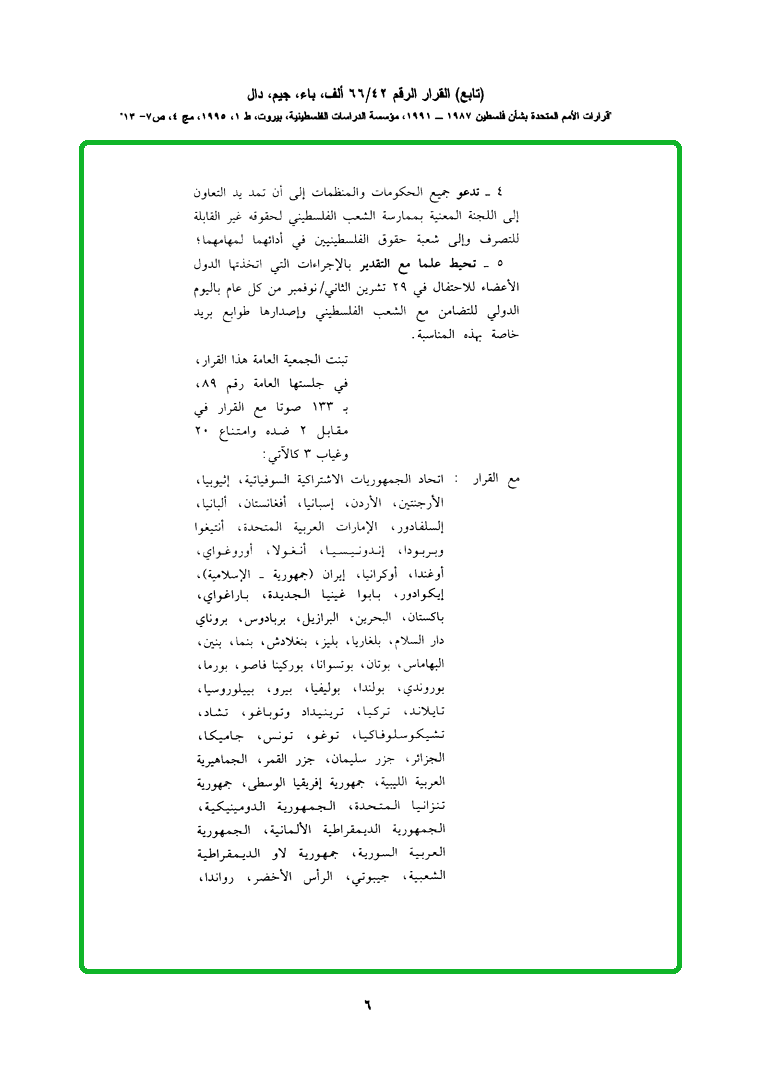 (تابع) القرار الرقم ٦٦/٤٢ ألف، باء، جيم، دال
"قرارات الأمم المتحدة بشأن فلسطين ١٩٨٧ ــ ١٩٩١، مؤسسة الدراسات الفلسطينية، بيروت، ط ١، ١٩٩٥، مج ٤، ص٧- ١٣"
٤ ـ تدعو جميع الحكومات والمنظمات إلى أن تمد يد التعاون
إلى اللجنة المعنية بممارسة الشعب الفلسطيني لحقوقه غير القابلة
للتصرف وإلى شعبة حقوق الفلسطينيين في أدائهما لمهامهما؛
٥ ـ تحيط علما مع التقدير بالإجراءات التي اتخذتها الدول
الأعضاء للاحتفال في ٢٩ تشرين الثاني/نوفمبر من كل عام باليوم
الدولي للتضامن مع الشعب الفلسطيني وإصدارها طوابع بريد
خاصة بهذه المناسبة.
تبنت الجمعية العامة هذا القرار،
في جلستها العامة رقم ٨٩،
بـ ١٣٣ صوتا مع القرار في
مقابل ٢ ضده وامتناع ٢٠
وغياب ٣ كالآتي:
مع القرار : اتحاد الجمهوريات الاشتراكية السوفياتية، إثيوبيا،
الأرجنتين، الأردن، إسبانيا، أفغانستان، ألبانيا،
إلسلفادور، الإمارات العربية المتحدة، أنتيغوا
وبربودا، إندونيسيا، أنغولا، أوروغواي،
أوغندا، أوكرانيا، إيران (جمهورية ـ الإسلامية)،
إيكوادور، بابوا غينيا الجديدة، باراغواي،
باكستان، البحرين، البرازيل، بربادوس، بروناي
دار السلام، بلغاريا، بليز، بنغلادش، بنما، بنين،
البهاماس، بوتان، بوتسوانا، بوركينا فاصو، بورما،
بوروندي، بولندا، بوليفيا، بيرو، بييلوروسيا،
تايلاند، تركيا، ترينيداد وتوباغو، تشاد،
تشيكوسلوفاكيا، توغو، تونس، جاميكا،
الجزائر، جزر سليمان، جزر القمر، الجماهيرية
العربية الليبية، جمهورية إفريقيا الوسطى، جمهورية
تنزانيا المتحدة، الجمهورية الدومينيكية،
الجمهورية الديمقراطية الألمانية، الجمهورية
العربية السورية، جمهورية لاو الديمقراطية
الشعبية، جيبوتي، الرأس الأخضر، رواندا،
٦